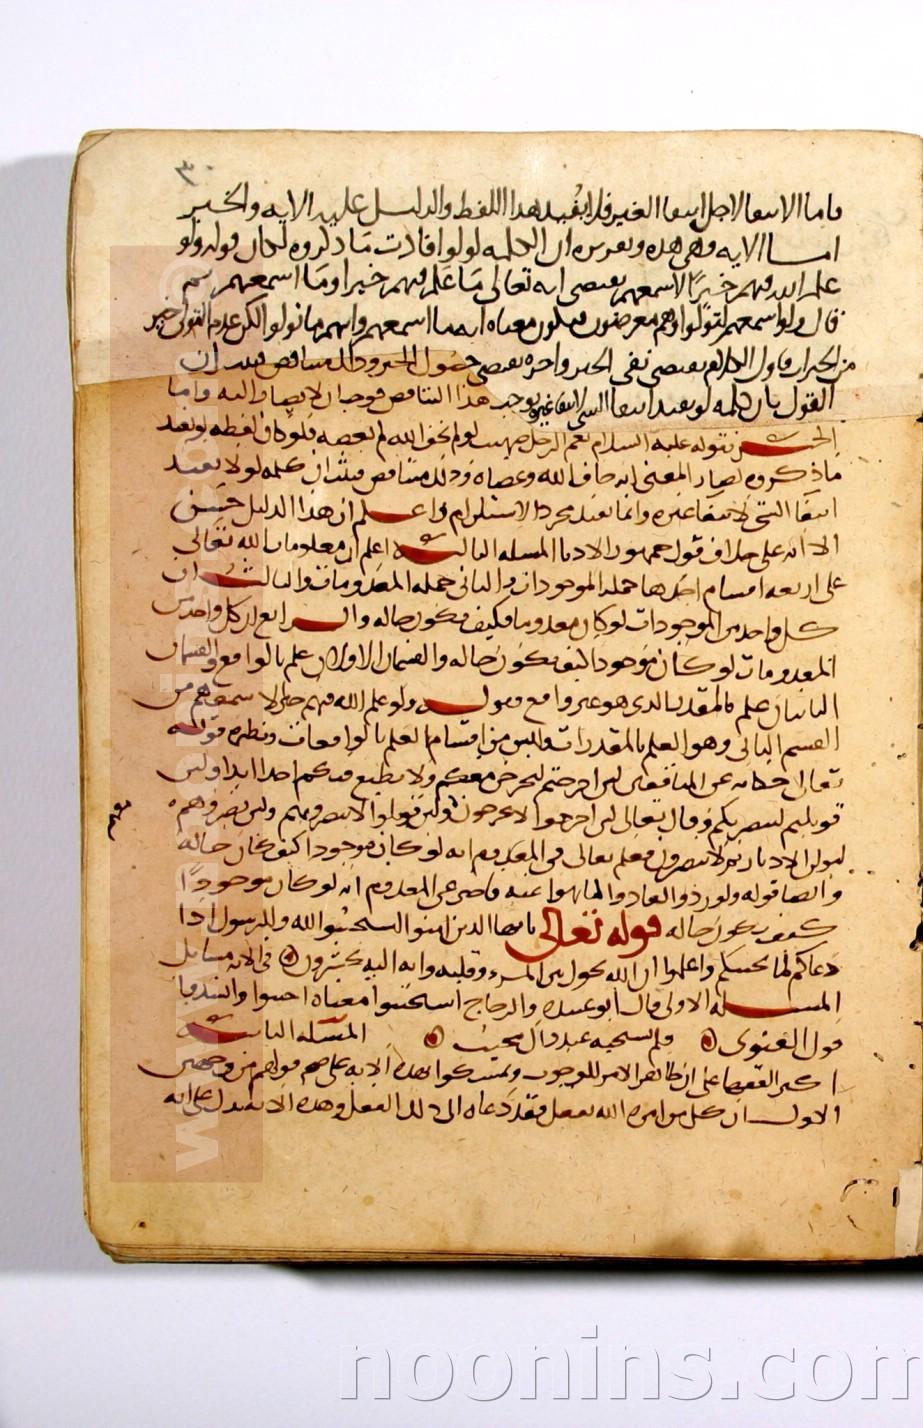 ٣٠
فاما الانتفا لاجل انتفا الغير فلا يفيده هذا اللفظ والدليل عليه الايه والخبر
اما الايه وهي هذه وتقريره ان كلمه لو لو افادت ما ذكروه لكان قوله ولو
علم الله فيهم خيرا لاسمعهم يقتضي انه تعالى ما علم فيهم خيرا وما اسمعهم ثم
قال ولو اسمعهم لتولوا وهم معرضون فيكون معناه انه ما اسمعهم وانهم ما تولوا لكن عدم التولي خير
من الخيرات فاول الكلام يقتضي نفي الخير واخره يقتضي حصول الخير وذلك متناقض فثبت ان
القول بان كلمه لو تفيد انتفا الشي لانتفا غيره يوجب هذا التناقض فوجب ان لا يصار اليه واما
الخبر فقوله عليه السلام نعم الرجل صهيب لو لم يخف الله لم يعصه فلو كان لفظه لو تفيد
ما ذكروه لصار المعنى انه خاف الله وعصاه وذلك متناقض فثبت ان كلمه لو لا تفيد
انتفا الشي لانتفا غيره وانما تفيد مجرد الاستلزام واعلم ان هذا الدليل حسن
الا انه على خلاف قول جمهور الادبا المسله الثالثه اعلم ان معلومات الله تعالى
على اربعه اقسام احدها جمله الموجودات والثاني جمله المعدومات والثالث ان
كل واحد من الموجودات لو كان معدوما فكيف يكون حاله والرابع ان كل واحد من
المعدومات لو كان موجودا كيف يكون حاله والقسمان الاولان علم بالواقع والقسمان
الثانيان علم بالمقدر الذي هو غير واقع فقوله ولو علم الله فيهم خيرا لاسمعهم من
القسم الثاني وهو العلم بالمقدرات وليس من اقسام العلم بالواقعات ونظيره قوله
تعالى حكايه عن المنافقين لين اخرجتم لنخرجن معكم ولا نطيع فيكم احدا ابدا ولين
قوتلتم لننصرنكم وقال تعالى لين اخرجوا لا يخرجون معهم ولين قوتلوا لا ينصرونهم ولين نصروهم
معهم
ليولن الادبار ثم لا ينصرون فعلم تعالى في المعدوم انه لو كان موجودا كيف كان حاله
وايضا قوله ولو ردوا لعادوا لما نهوا عنه فاخبر عن المعدوم انه لو كان موجودا
كيف يكون حاله قوله تعالى يايها الذين امنوا استجيبوا لله وللرسول اذا
دعاكم لما يحييكم واعلموا ان الله يحول بين المرء وقلبه وانه اليه تحشرون في الايه مسايل
المسله الاولى قال ابو عبيده والزجاج استجيبوا معناه اجيبوا وانشدوا
قول الغنوي فلم يستجبه عند ذاك مجيب المسله الثانيه
اكثر الفقها على ان ظاهر الامر للوجوب وتمسكوا بهذه الايه على صحه قولهم من وجهين
الاول ان كل من امره الله بفعل فقد دعاه الى ذلك الفعل وهذه الايه تدل على انه